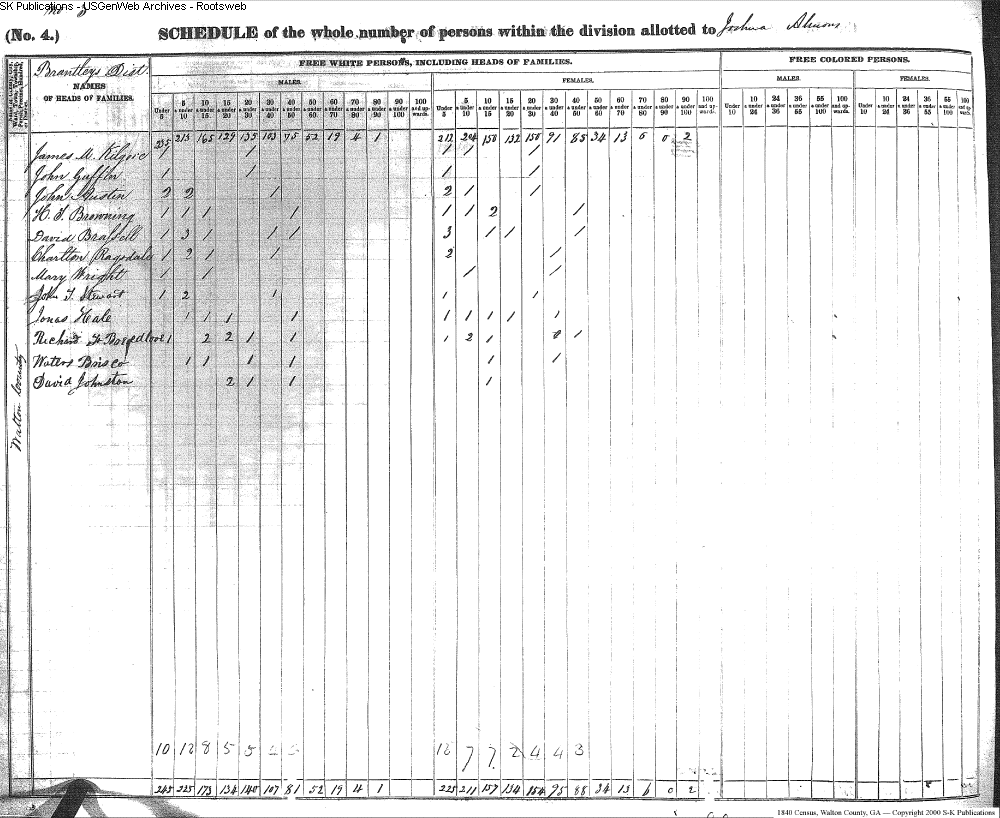 SK Publications - USGenWeb Archives - Rootsweb
(No. 4.) SCHEDULE of the whole number of persons within the division allotted to Joshua
Brantleys Dist.
NAMES OF HEADS OF FAMILIES.
FREE WHITE PERSONS, INCLUDING HEADS OF FAMILIES.
FREE COLORED PERSONS.
MALES. FEMALES. MALES. FEMALES.
Under 5 5 & under 10 10 & under 15 15 & under 20 20 & under 30 30 & under 40 40 & under 50 50 & under 60 60 & under 70 70 & under 80 80 & under 90 90 & under 100 100 and upwards.
Under 5 5 & under 10 10 & under 15 15 & under 20 20 & under 30 30 & under 40 40 & under 50 50 & under 60 60 & under 70 70 & under 80 80 & under 90 90 & under 100 100 and upwards.
Under 10 10 & under 24 24 & under 36 36 & under 55 55 & under 100 100 and upwards.
Under 10 10 & under 24 24 & under 36 36 & under 55 55 & under 100 100 and upwards.
235 213 165 129 135 103 75 52 19 4 1 212 204 150 132 150 91 85 34 13 6 0 2
James M. Kilgore 1 1 1 1 1
John Guffin 1 1 1 1
John Austin 2 2 1 2 1 1
H. T. Browning 1 1 1 1 1 1 2 1
David Brassell 1 3 1 1 1 3 1 1 1
Charlton Ragsdale 1 2 1 1 2 1
Mary Wright 1 1 1 1
John T. Stewart 1 2 1 1 1
Jonas Hale 1 1 1 1 1 1 1 1 1
Richard 1 2 2 1 1 1 2 1 1
Waters Brisco 1 1 1 1 1 1
David Johnston 2 1 1 1
Walton County
10 12 8 5 5 4 12 7 7 2 4 4 3
245 225 173 134 140 107 81 52 19 4 1 225 211 157 134 154 95 88 34 13 6 0 2
1840 Census, Walton County, GA — Copyright 2000 S-K Publications